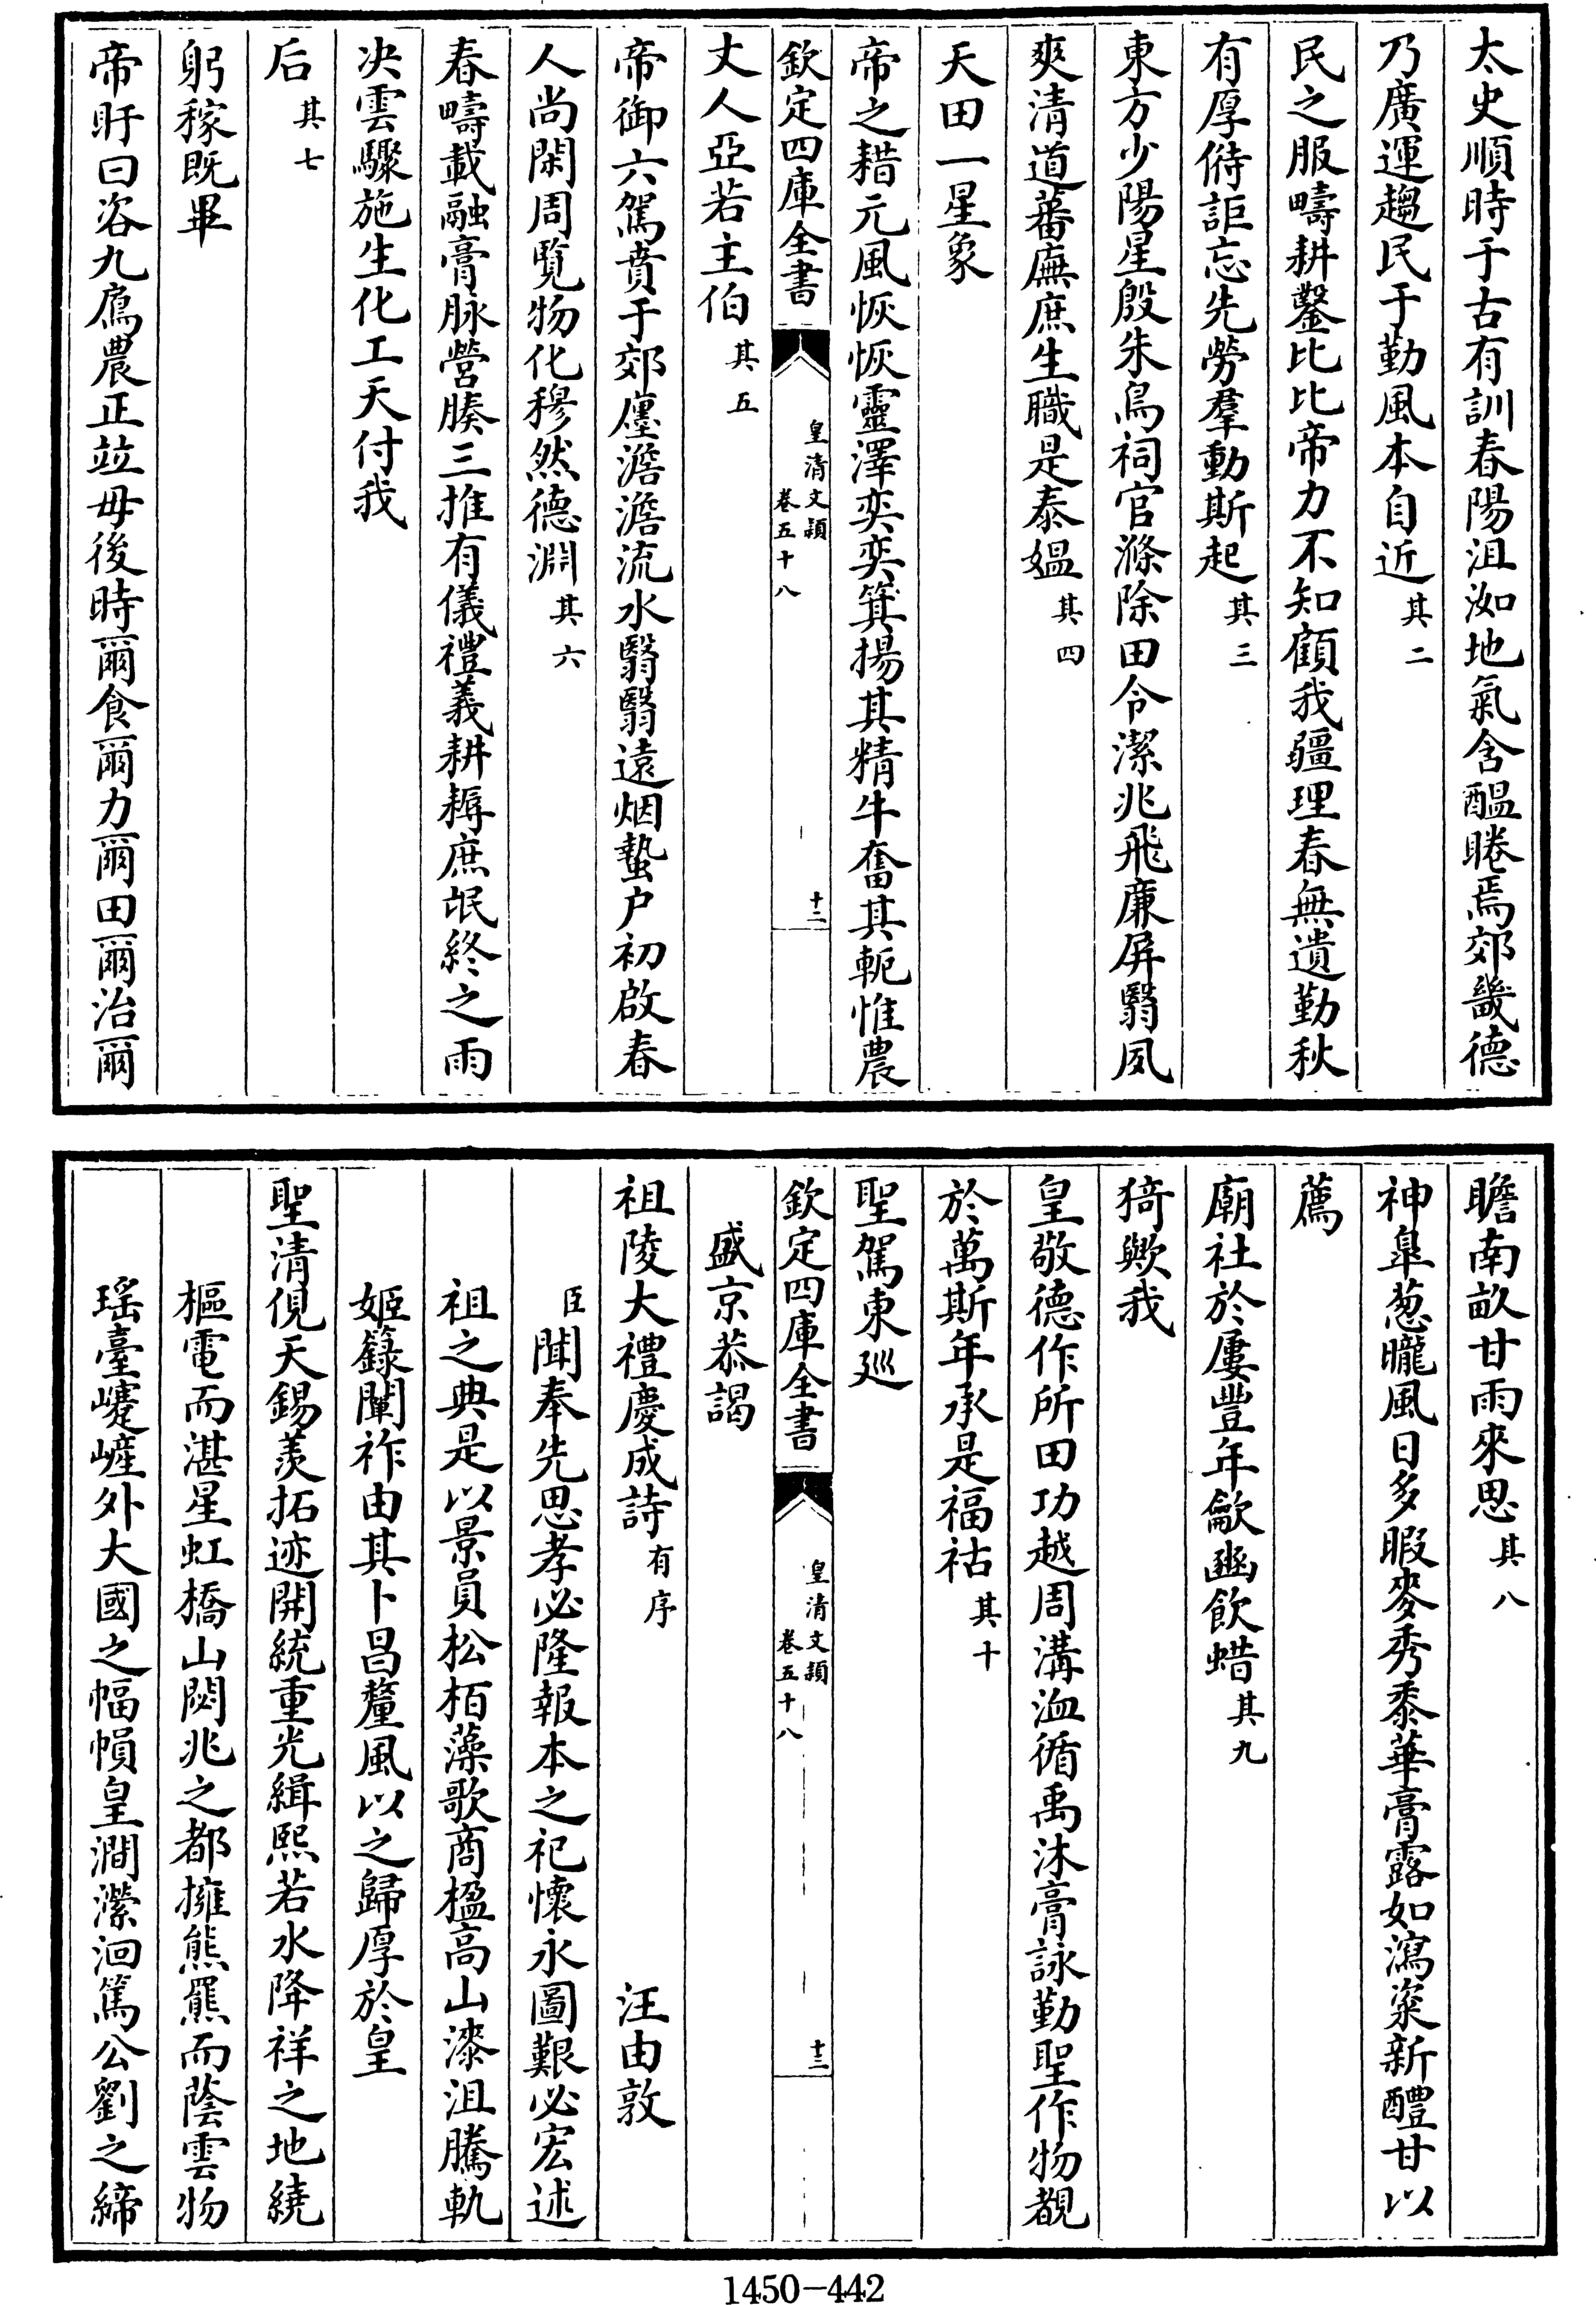 太史順時于古有訓春陽沮洳地氣含醖睠焉郊畿德
乃廣運趨民于勤風本自近其二
民之服疇耕鑿比比帝力不知顧我疆理春無遺勤秋
有厚偫詎忘先勞羣動斯起其三
東方少陽星殷朱鳥祠官滌除田令潔兆飛廉屏翳夙
爽清道蕃廡庶生職是泰媼其四
天田一星象
帝之耤元風恢恢靈澤奕奕箕揚其精牛奮其軛惟農
欽定四庫全書
皇清文頴
卷五十八
十二
丈人亞若主伯其五
帝御六駕賁于郊廛澹澹流水翳翳遠烟蟄户初啟春
人尚閑周覧物化穆然德淵其六
春疇載融膏脉營腠三推有儀禮義耕耨庶氓終之雨
决雲驟施生化工天付我
后其七
躬稼既畢
帝盱曰咨九鳸農正竝毋後時爾食爾力爾田爾治爾
瞻南畝甘雨來思其八
神皐葱朧風日多暇麥秀黍華膏露如瀉粢新醴甘以
薦
廟社於屢豐年龡豳飲蜡其九
猗歟我
皇敬德作所田功越周溝洫循禹沐膏詠勤聖作物覩
於萬斯年承是福祜其十
聖駕東廵
欽定四庫全書
皇清文頴
卷五十八
十三
盛京恭謁
祖陵大禮慶成詩有序 汪由敦
臣聞奉先思孝必隆報本之祀懷永圖艱必宏述
祖之典是以景員松栢藻歌商楹高山漆沮騰軌
姬籙闡祚由其卜昌釐風以之歸厚於皇
聖清俔天錫羡拓迹開統重光緝熙若水降祥之地繞
樞電而湛星虹橋山閟兆之都擁熊羆而蔭雲物
瑤臺嶻嶭外大國之幅幀皇澗瀠洄篤公劉之締
1450-442